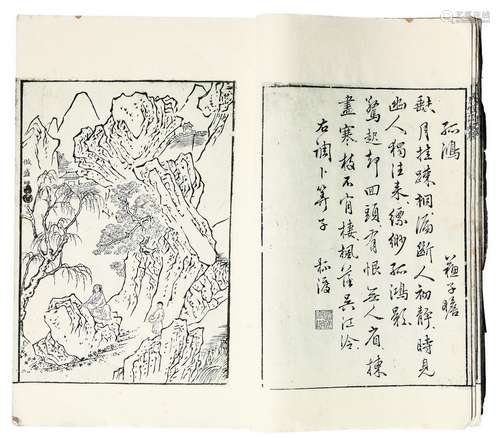 孤鴻
蘓子瞻
缺月挂踈桐漏斷人初靜時見
幽人獨往來縹緲孤鴻影
驚起却回頭有恨無人省揀
盡寒枝不肯棲楓落吳江冷
右調卜算子